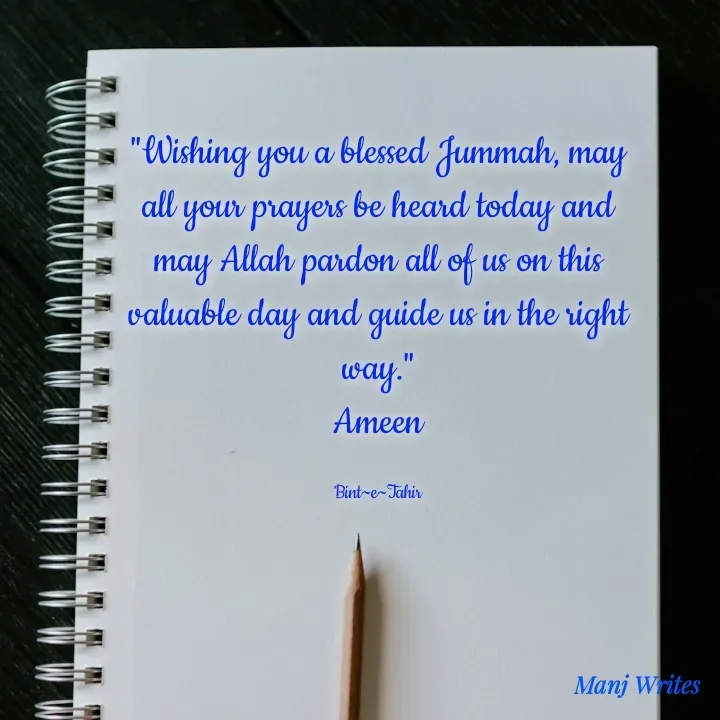 "Wishing you a blessed Jummah, may
all your prayers be heard today and
may Allah pardon all of us on this
valuable day and guide us in the right
way."
Ameen
Bint~e~Tahir
Manj Writes